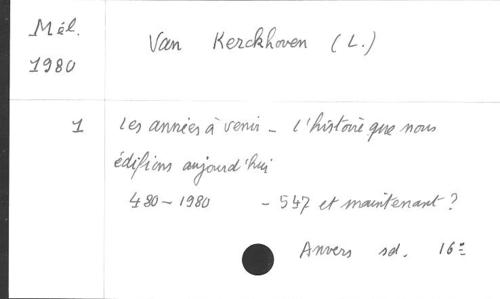 Mél.
1980
Van Kerckhoven (L.)
1 Les années à venir - L'histoire que nous
édifions aujourd'hui
480 - 1980 - 547 et maintenant ?
Anvers sd. 16°